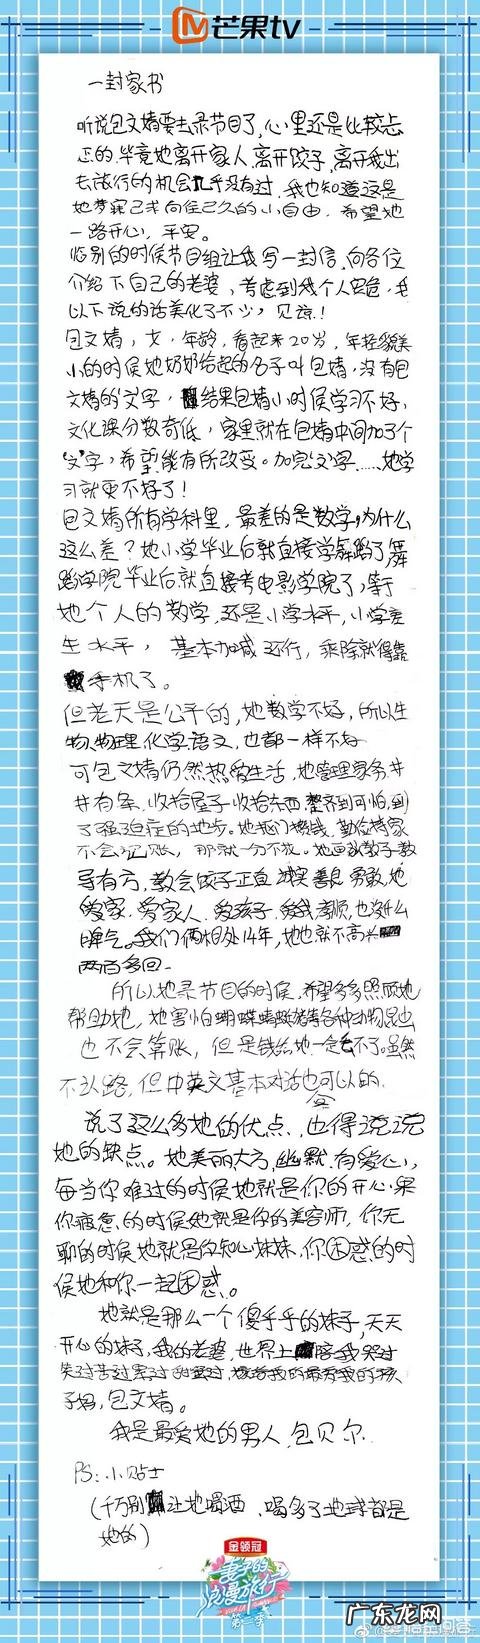 芒果tv
一封家书
听说包文婧要去录节目了,心里还是比较忐
忑的.毕竟她离开家人.离开饺子,离开我出
去旅行的机会几乎没有过.我也知道这是
她梦寐已求向往已久的小自由.希望她
一路开心,平安。
临别的时候节目组让我写一封信.向各位
介绍下自己的老婆,考虑到我个人安危,我
以下说的话美化了不少,见谅!
包文婧,女,年龄,看起来20岁,年轻貌美
小的时候她奶奶给起的名字叫包婧,没有包
文婧的"文"字,结果包婧小时侯学习不好,
文化课分数奇低,家里就在包婧中间加了个
"文"字,希望能有所改变。加完文字……她学
习就更不好了!
包文婧所有学科里,最差的是数学,为什么
这么差?她小学毕业后就直接学舞蹈了舞
蹈学院毕业后就直接考电影学院了,等于
她个人的数学,还是小学水平,小学差
生水平,基本加减还行,乘除就得靠
手机了。
但老天是公平的,她数学不好,所以生
物.物理.化学.语文,也都一样不好
可包文婧仍然热爱生活,她管理家务井
井有条,收拾屋子收拾东西.整齐到可怕,到
了强迫症的地步。她抠门挣钱,勤俭持家
不会记账,那就一分不花。她画画教子教
导有方,教会饺子正直 诚实 善良 勇敢,她
爱家.爱家人.爱孩子.爱我.孝顺,也没什么
脾气。我们俩相处14年,她也就不高兴
两百多回.
所以她录节目的时候,希望多多照顾她
帮助她,她害怕蝴蝶蜻蜓等各种动物昆虫
也不会算账,但是钱给她一定丢不了。虽然
不认路,但中英文基本对话也可以的.
说了这么多她的优点,也得说说
她的缺点。她美丽大方,幽默.有爱心,
每当你难过的时侯她就是你的开心果
你疲惫的时侯她就是你的美容师,你无
聊的时侯她就是你知心妹妹,你困惑的时
侯她和你一起困惑。
她就是那么一个傻乎乎的妹子,天天
开心的妹子,我的老婆,世界上陪我哭过
笑过苦过累过甜蜜过,
子妈,包文婧。
我是最爱她的男人.包贝尔.
PS:小贴士
(千万别让她喝酒,喝多了地球都是
她的)
金领冠
妻子的
浪漫旅行
第二季
广东龙网